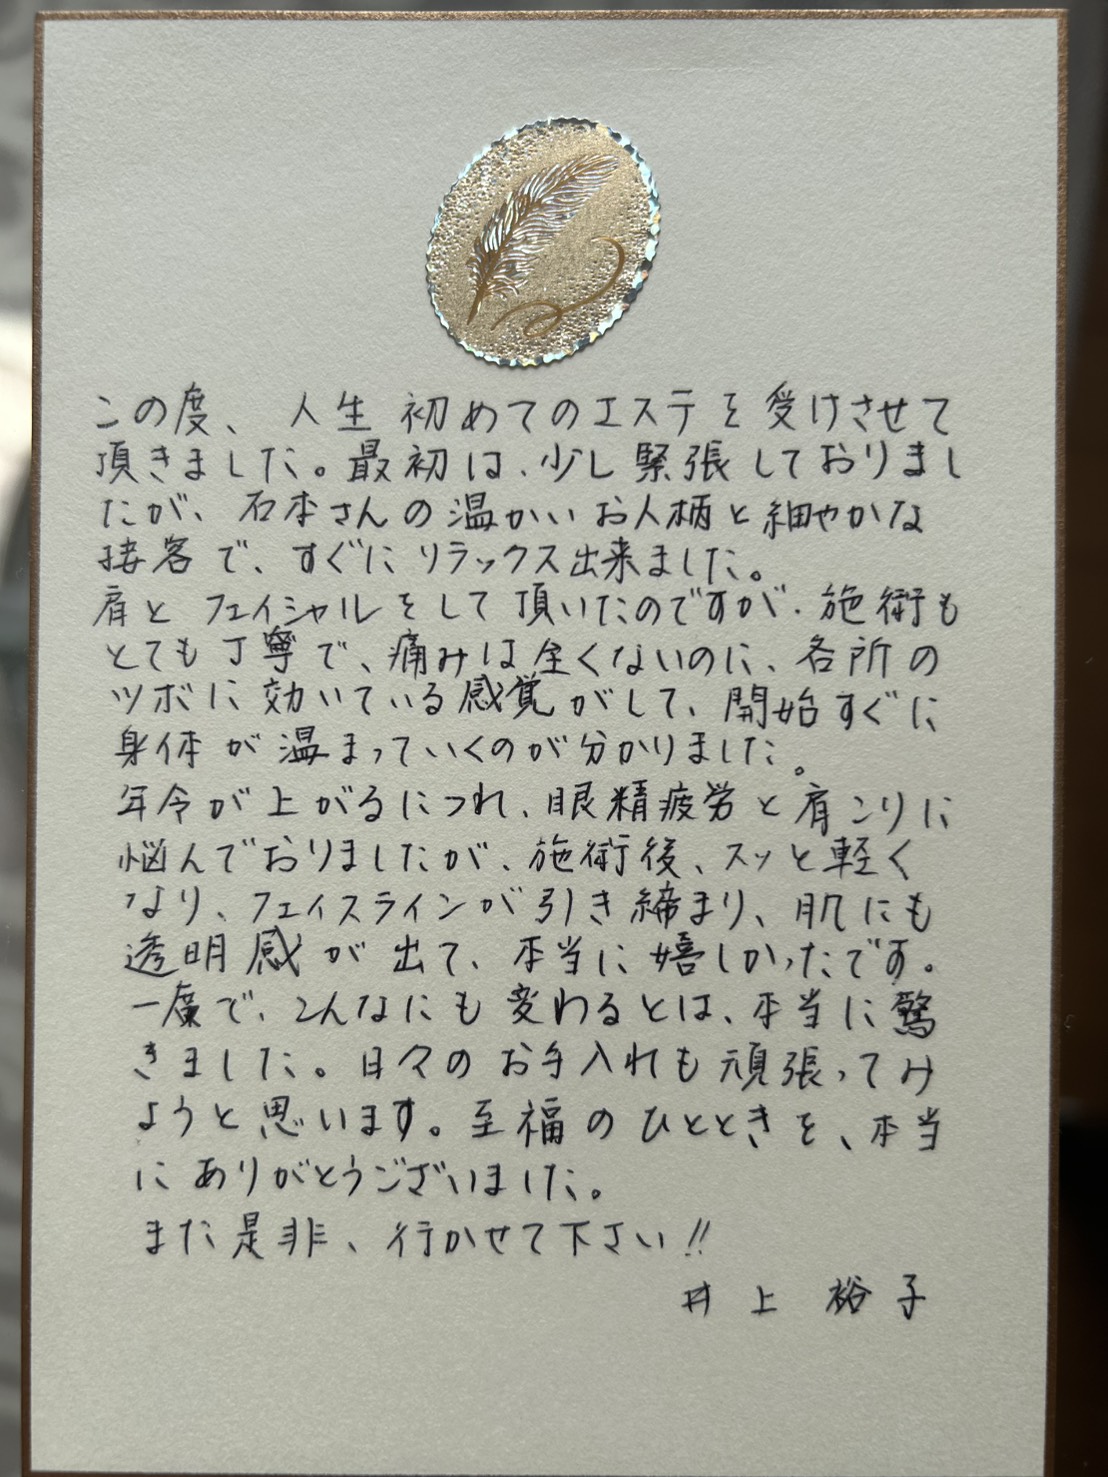 この度、人生初めてのエステを受けさせて
頂きました。最初は、少し緊張しておりまし
たが、石本さんの温かいお人柄と細やかな
接客で、すぐにリラックス出来ました。
肩とフェイシャルをして頂いたのですが、施術も
とても丁寧で、痛みは全くないのに、各所の
ツボに効いている感覚がして、開始すぐに
身体が温まっていくのが分かりました。
年令が上がるにつれ、眼精疲労と肩こりに
悩んでおりましたが、施術後、スッと軽く
なり、フェイスラインが引き締まり、肌にも
透明感が出て、本当に嬉しかったです。
一度で、こんなにも変わるとは、本当に驚
きました。日々のお手入れも頑張ってみ
ようと思います。至福のひとときを、本当
にありがとうございました。
また是非、行かせて下さい!!
井上 裕子